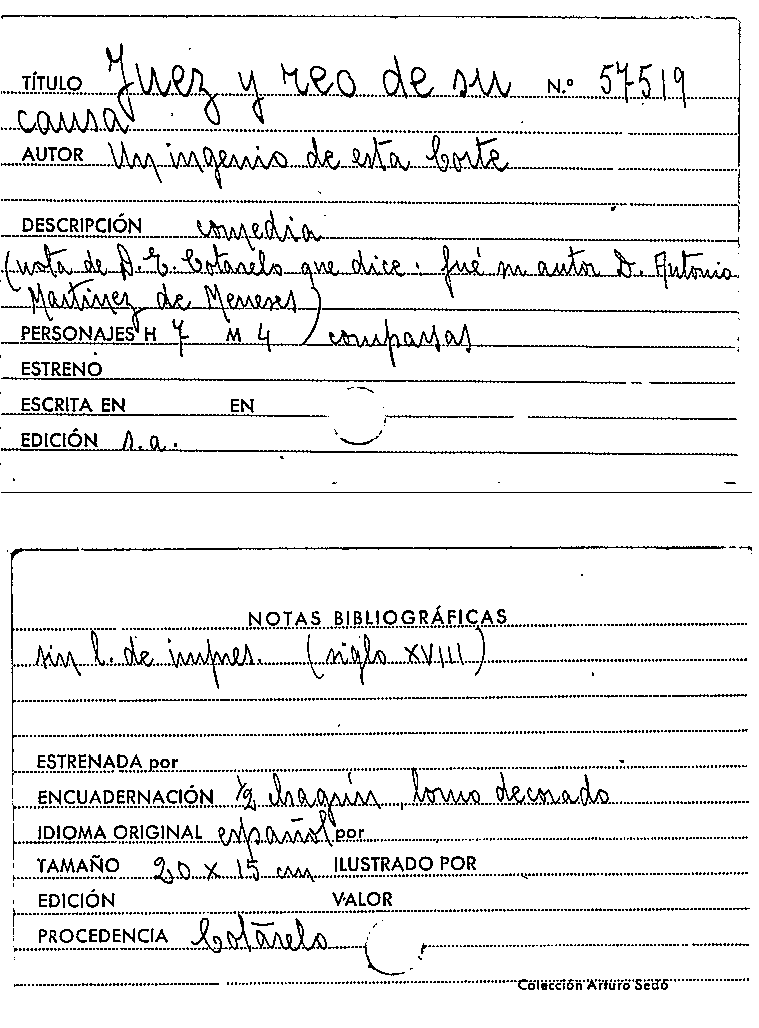 TÍTULO Juez y reo de su N.º 57519
causa
AUTOR Un ingenio de esta Corte
DESCRIPCIÓN comedia
(nota de D. E. Cotarelo que dice: fué su autor D. Antonio
Martínez de Meneses)
PERSONAJES H 7 M 4 comparsas
ESTRENO
ESCRITA EN EN
EDICIÓN s.a.
NOTAS BIBLIOGRÁFICAS
sin l. de impres. (siglo XVIII)
ESTRENADA por
ENCUADERNACIÓN 1/2 chagrín, lomo decorado
IDIOMA ORIGINAL español por
TAMAÑO 20 x 15 cm ILUSTRADO POR
EDICIÓN VALOR
PROCEDENCIA Cotarelo
Colección Arturo Sedó